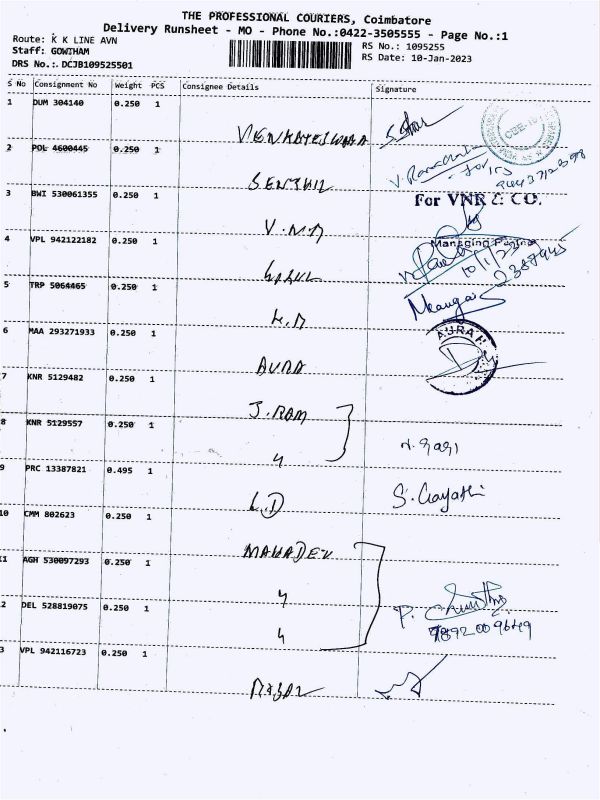 THE PROFESSIONAL COURIERS, Coimbatore
Delivery Runsheet - MO - Phone No.:0422-3505555 - Page No.:1
Route: K K LINE AVN
Staff: GOWTHAM
DRS No.: DCJB109525501
RS No.: 1095255
RS Date: 10-Jan-2023
S No Consignment No Weight PCS Consignee Details Signature
1 DUM 304140 0.250 1
VENKATESWARA
2 POL 4600445 0.250 1
SENTHIL
3 BWI 530061355 0.250 1
For VNR & CO.
V.N.R
4 VPL 942122182 0.250 1
Managing Partner
10/1/23
5 TRP 5064465 0.250 1
6 MAA 293271933 0.250 1
AURA
AURA
7 KNR 5129482 0.250 1
J.RAM
8 KNR 5129557 0.250 1
9 PRC 13387821 0.495 1
S. Gayathi
L.D
10 CMM 802623 0.250 1
MAHADEV
11 AGH 530097293 0.250 1
12 DEL 528819075 0.250 1
9892009649
13 VPL 942116723 0.250 1